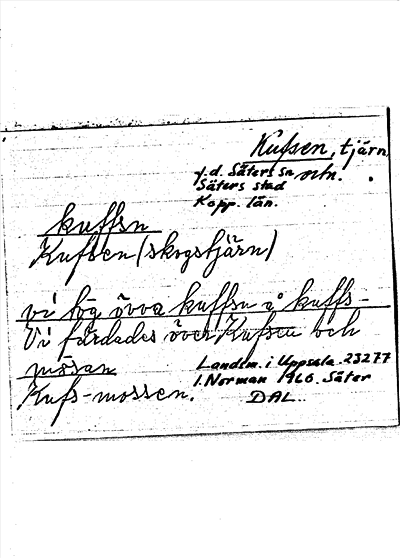 Kufsen, tjärn.
f.d. Säters sn
Säters stad
Kopp. län.
kuffsn
Kufsen (skogstjärn)
vi fög övva kuffsn å kuffs-
Vi färdades över Kufsen och
mössan
Kufs-mossen.
Landsm. i Uppsala 23277
I. Norman 1960. Säter
DAL.